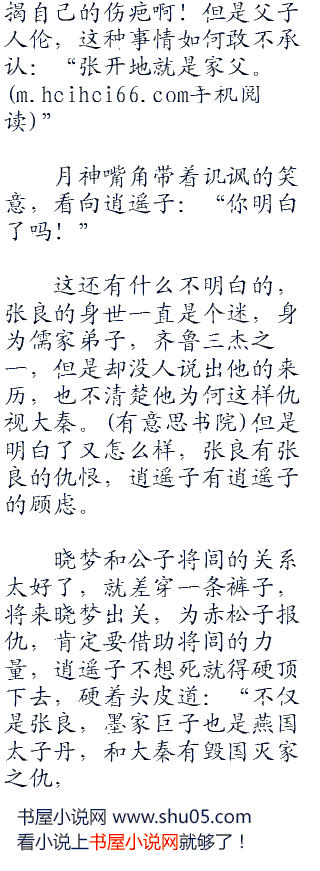 揭自己的伤疤啊！但是父子
人伦，这种事情如何敢不承
认：“张开地就是家父。
(m.hcihci66.com手机阅
读)”
月神嘴角带着讥讽的笑
意，看向逍遥子：“你明白
了吗！”
这还有什么不明白的，
张良的身世一直是个迷，身
为儒家弟子，齐鲁三杰之
一，但是却没人说出他的来
历，也不清楚他为何这样仇
视大秦。(有意思书院)但是
明白了又怎么样，张良有张
良的仇恨，逍遥子有逍遥子
的顾虑。
晓梦和公子将闾的关系
太好了，就差穿一条裤子，
将来晓梦出关，为赤松子报
仇，肯定要借助将闾的力
量，逍遥子不想死就得硬顶
下去，硬着头皮道：“不仅
是张良，墨家巨子也是燕国
太子丹，和大秦有毁国灭家
之仇，
书屋小说网 www.shu05.com
看小说上书屋小说网就够了！